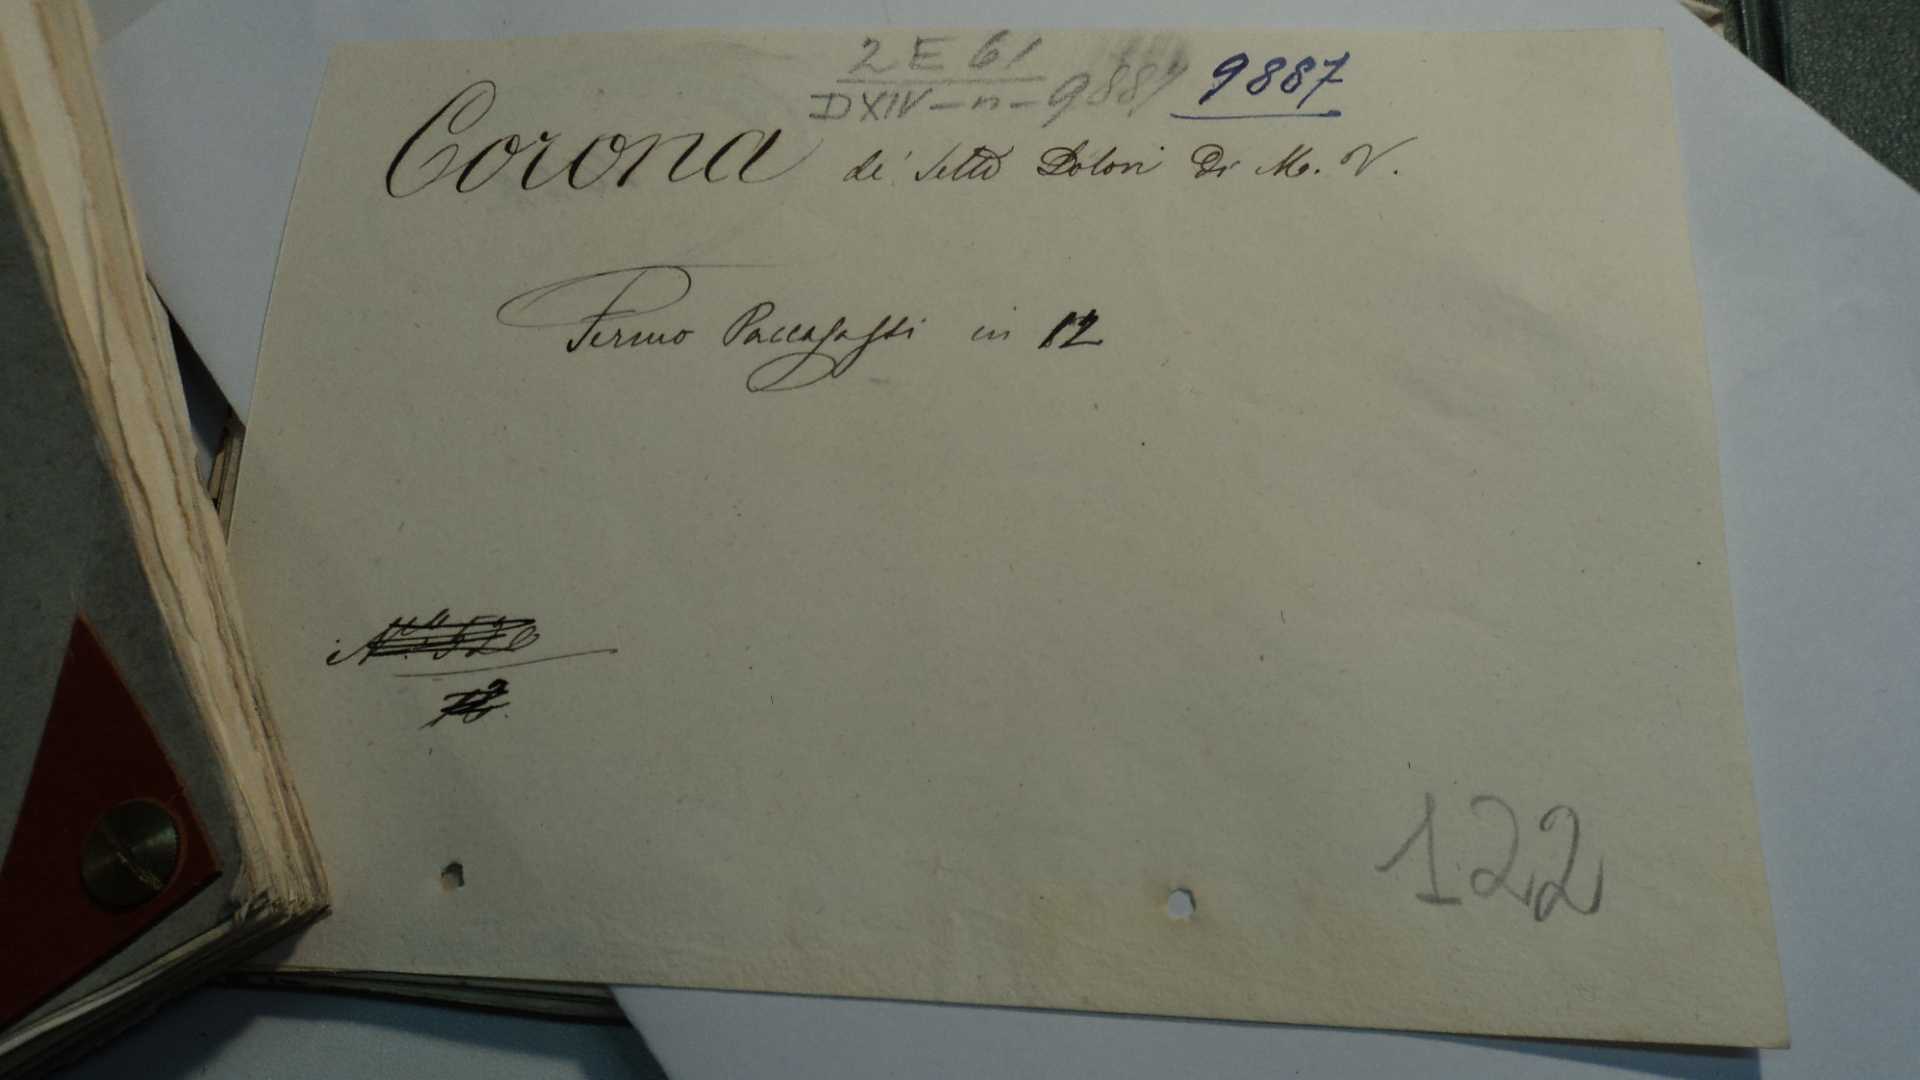 2 E 61
DXIV-n-9887 9887
Corona de' Sette Dolori Di M. V.
Fermo Paccasassi in 12
122